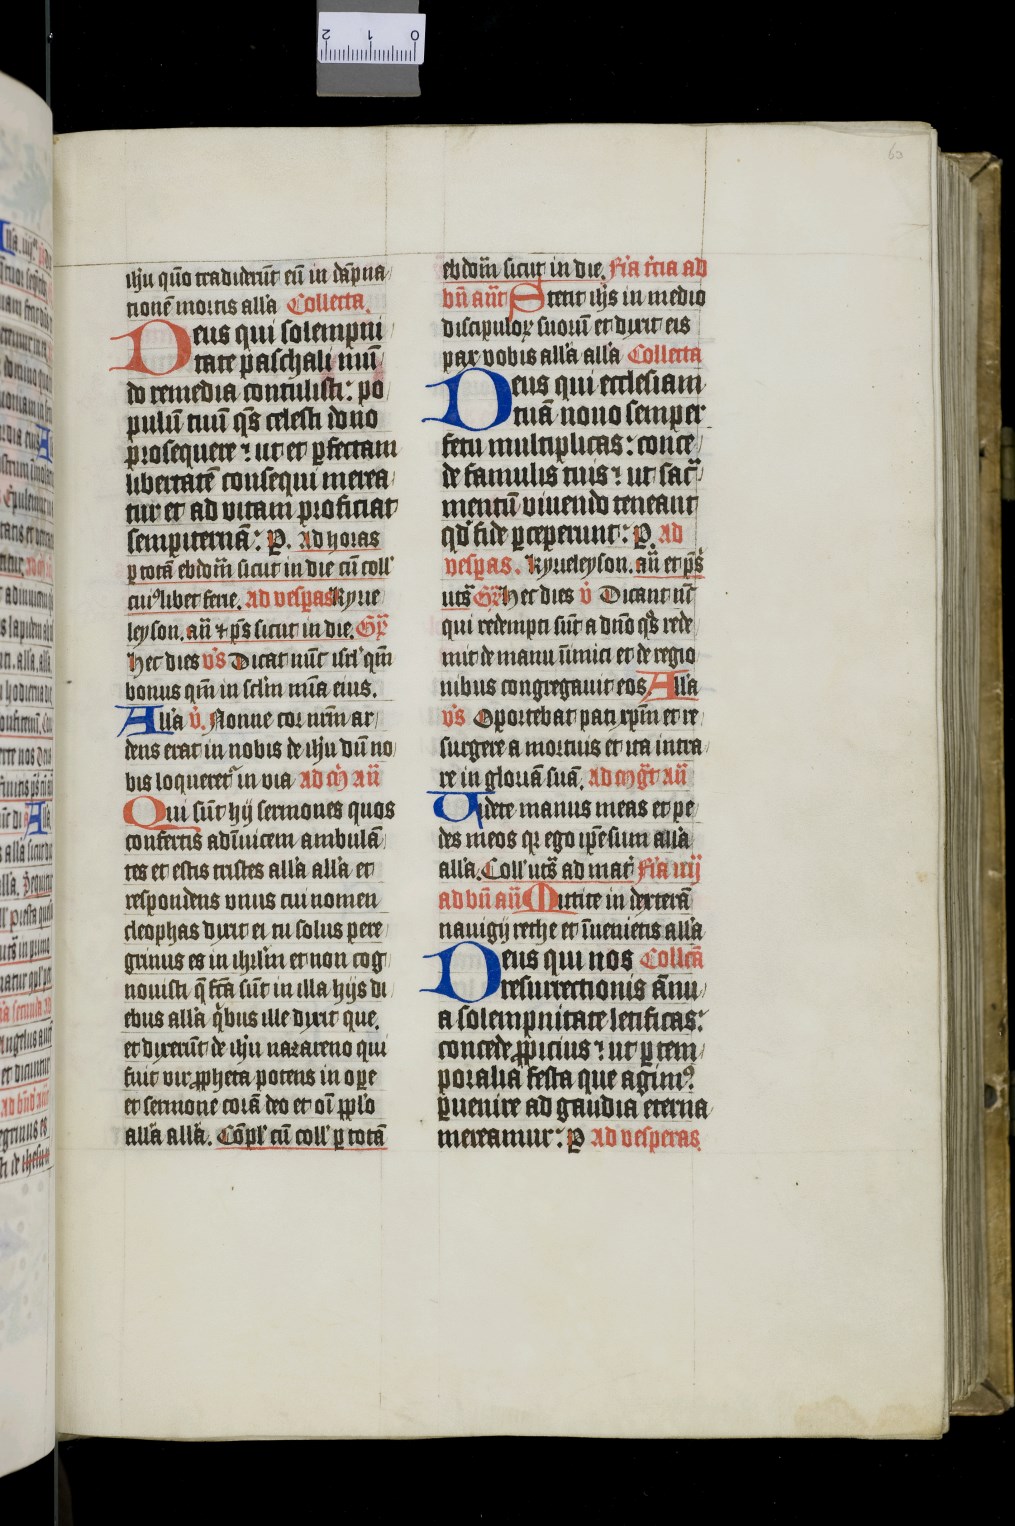 ihu quo͞ tradiderūt eū in da͞pna
tionē mortis alla Collecta.
Deus qui solempni
tate paschali mū
do remedia contulisti: po
pulū tuū q͞s celesti dono
prosequere ⁊ ut et ꝑfectam
libertatē consequi merea
tur et ad vitam proficiat
sempiternā: P. Ad horas
ꝑ totā ebdom͞ sicut in die cū coll'
cuiꝰlibet ferie. Ad vesperas Kyrie
leyson. an͞ ⁊ p͞s sicut in die. Gr͞
Hec dies v͞s Dicat nūc isrl' qm͞
bonus qm͞ in sclm͞ mia͞ eius.
All'a v͞. Nonne cor nrm͞ ar
dens erat in nobis de ihu dū no
bis loqueret͛ in via ad m͞ an͞
Qui sūt hij sermones quos
confertis adīuicem ambulā
tes et estis tristes all'a all'a et
respondens vnus cui nomen
cleophas dixit ei tu solus pere
grinus es in ihrl'm et non cog
nouisti q͞ fc͞a sūt in illa hijs di
ebus all'a qͥbus ille dixit que.
et dixerūt de ihu nazareno qui
fuit vir ꝓpheta potens in oꝑe
et sermone corā deo et oi͞ pplo
all'a all'a. Co͞pl' cū coll' ꝑ totā
ebdom͞ sicut in die. Fr͞ia t͞cia ad
bn͞ an͞t Stetit ih͞s in medio
discipuloꝝ suorū et dixit eis
pax vobis all'a all'a Collecta
Deus qui ecclesiam
tuā nouo semper
fetu multiplicas: conce
de famulis tuis ⁊ ut sac͞
mentū viuendo teneant
qd' fide ꝑceperunt: P. Ad
vesperas. Kyrieleyson. an͞ et p͞s
ut͞s Gr͞ Hec dies v͞ Dicant nc͞
qui redempti sūt a dn͞o q͞s rede
mit de manu īimici et de regio
nibus congregauit eos. All'a
v͞s Oportebat pati xpm͞ et re
surgere a mortuis et ita intra
re in gloriā suā. ad mg͞t an͞
Videte manus meas et pe
des meos qr ego ip͞e sum all'a
all'a. Coll' ut͞s ad mat͛ Fr͞ia iiij
ad bn͞ an͞ Mittite in dexterā
nauigij rethe et īuenietis all'a
Deus qui nos Collc͞a
resurrectionis a͞nu
a solempnitate letificas:
concede ꝓpicius ⁊ ut ꝑ tem
poralia festa que agimꝰ
ꝑuenire ad gaudia eterna
mereamur: P Ad vesperas